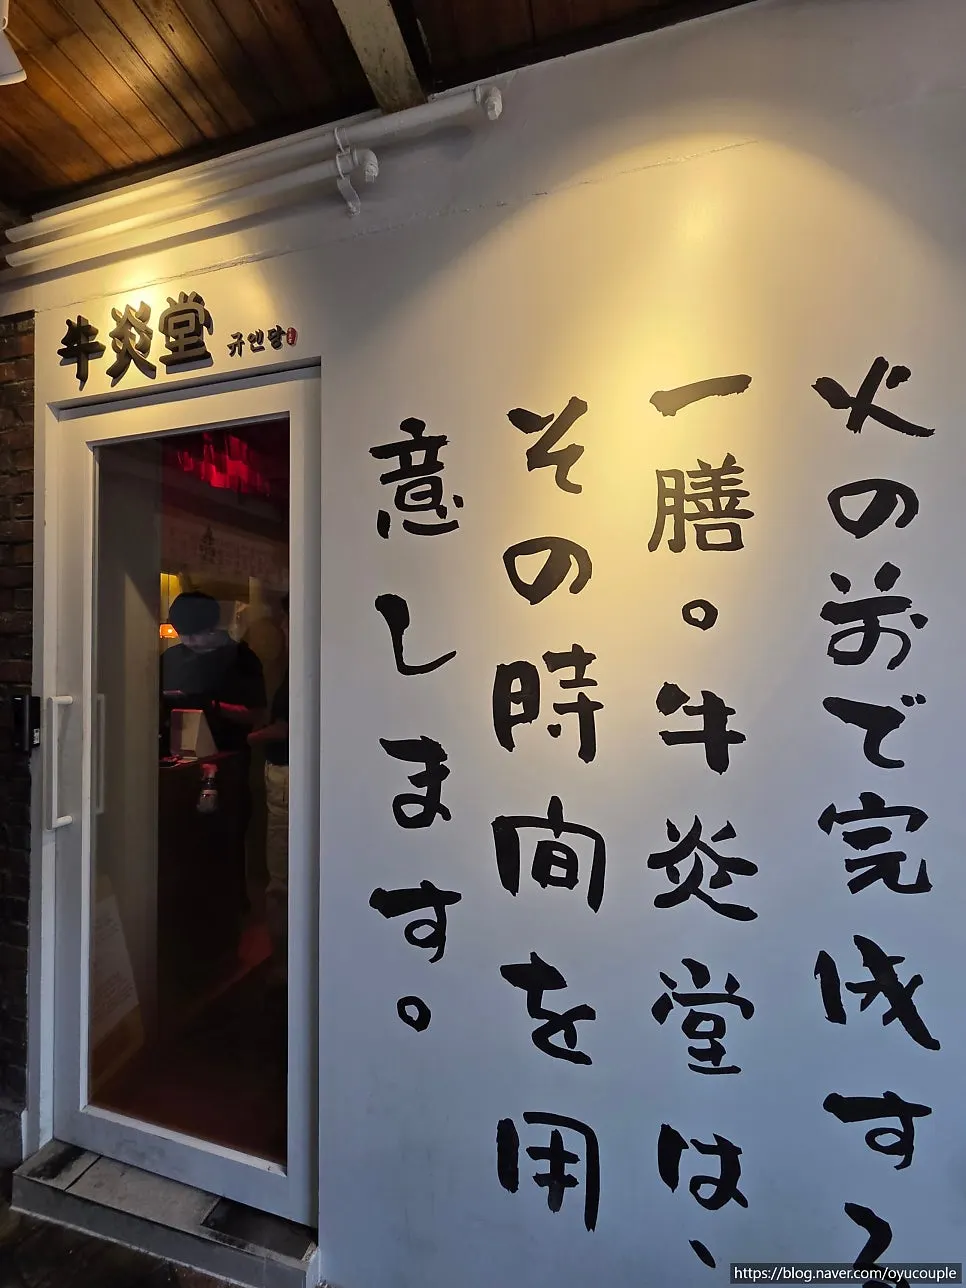 牛炎堂 규엔당
火のおで完成する
一膳。牛炎堂は、
その時間を用
意します。
https://blog.naver.com/oyucouple